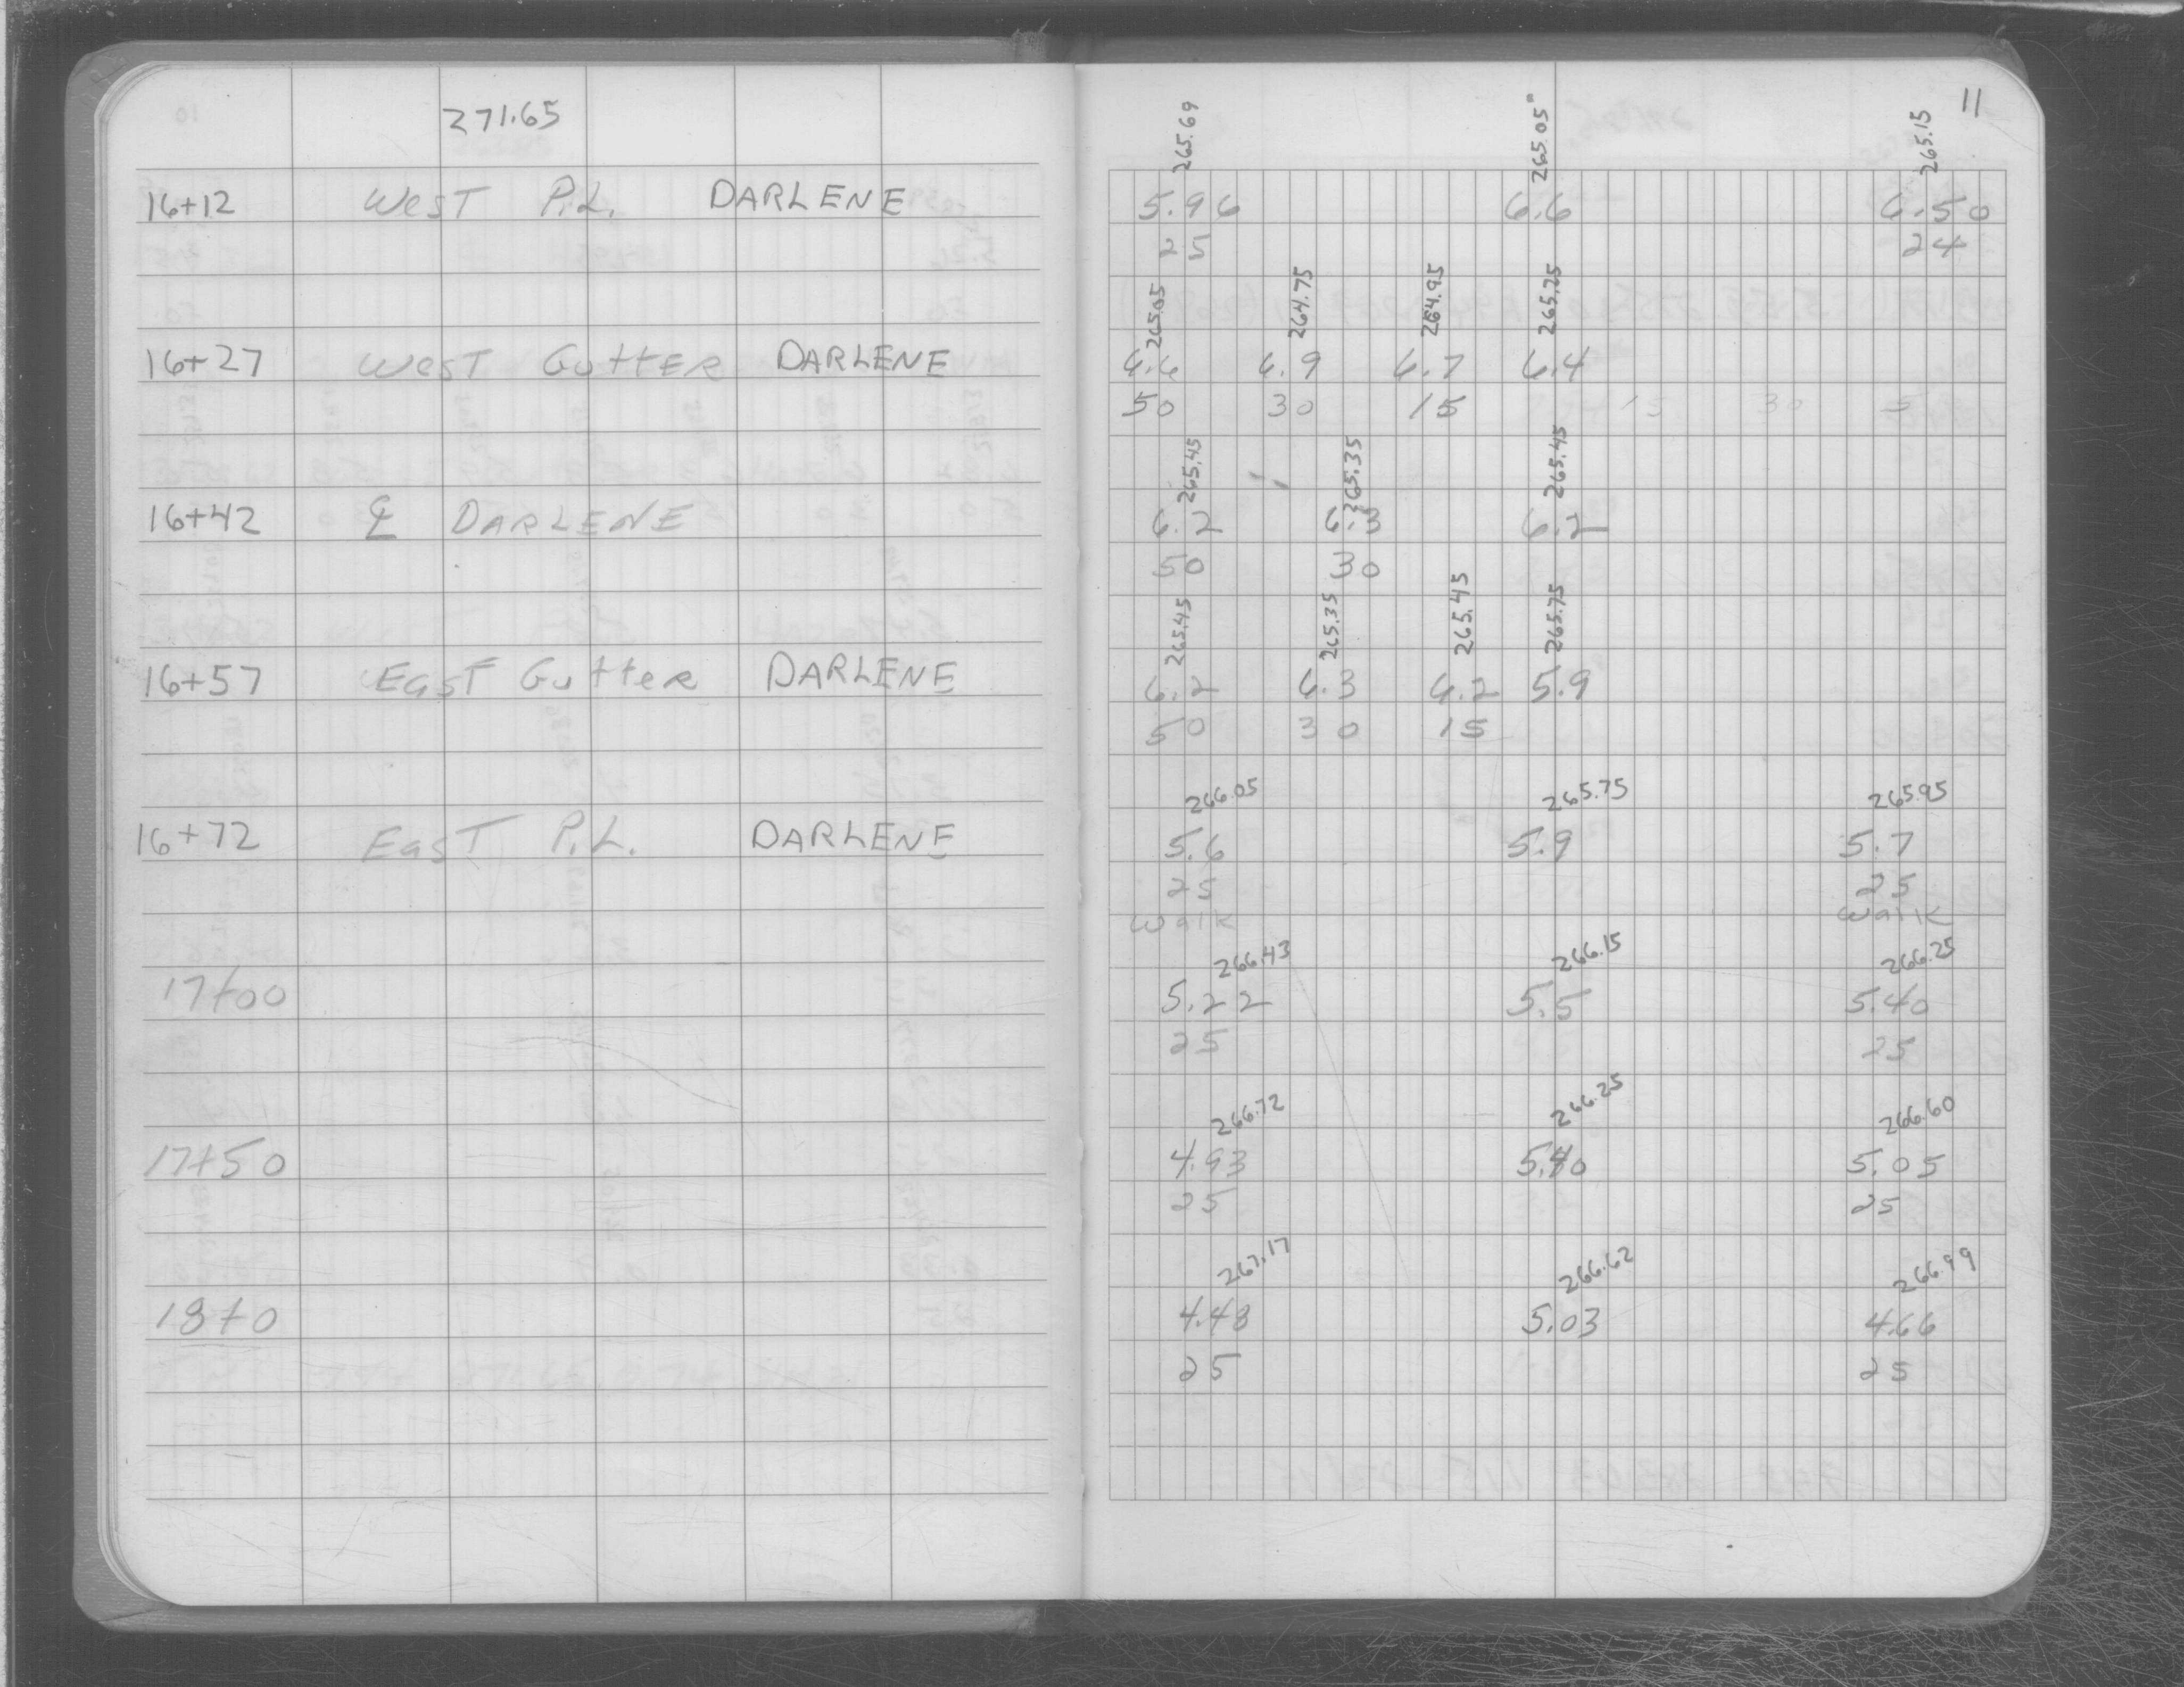 271.65
11
265.69 265.05 265.15
16+12 West P.L. DARLENE 5.96 6.6 6.50
25 24
265.05 264.75 264.95 265.25
16+27 West Gutter DARLENE 6.6 6.9 6.7 6.4
50 30 15 15 30
265.45 265.35 265.45
16+42 ℄ DARLENE 6.2 6.3 6.2
50 30
265.45 265.35 265.45 265.75
16+57 East Gutter DARLENE 6.2 6.3 6.2 5.9
50 30 15
266.05 265.75 265.95
16+72 East P.L. DARLENE 5.6 5.9 5.7
25 25
Walk Walk
266.43 266.15 266.25
17+00 5.22 5.5 5.40
25 25
266.72 266.25 266.60
17+50 4.93 5.40 5.05
25 25
267.17 266.62 266.99
18+0 4.48 5.03 4.66
25 25